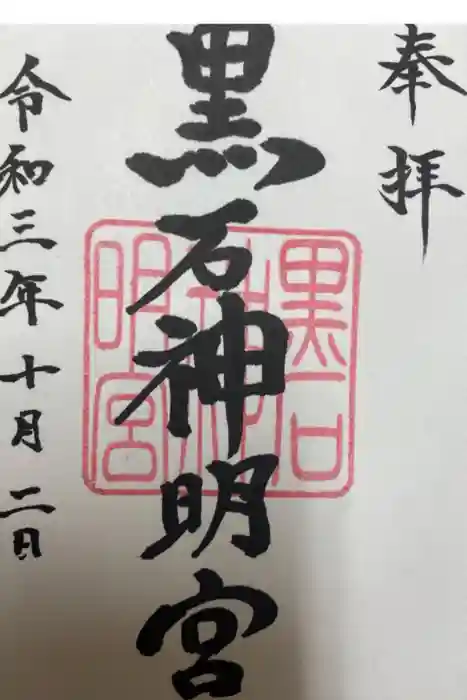 奉拝
黒石神明宮
黒石
神明宮
令和三年十月二日